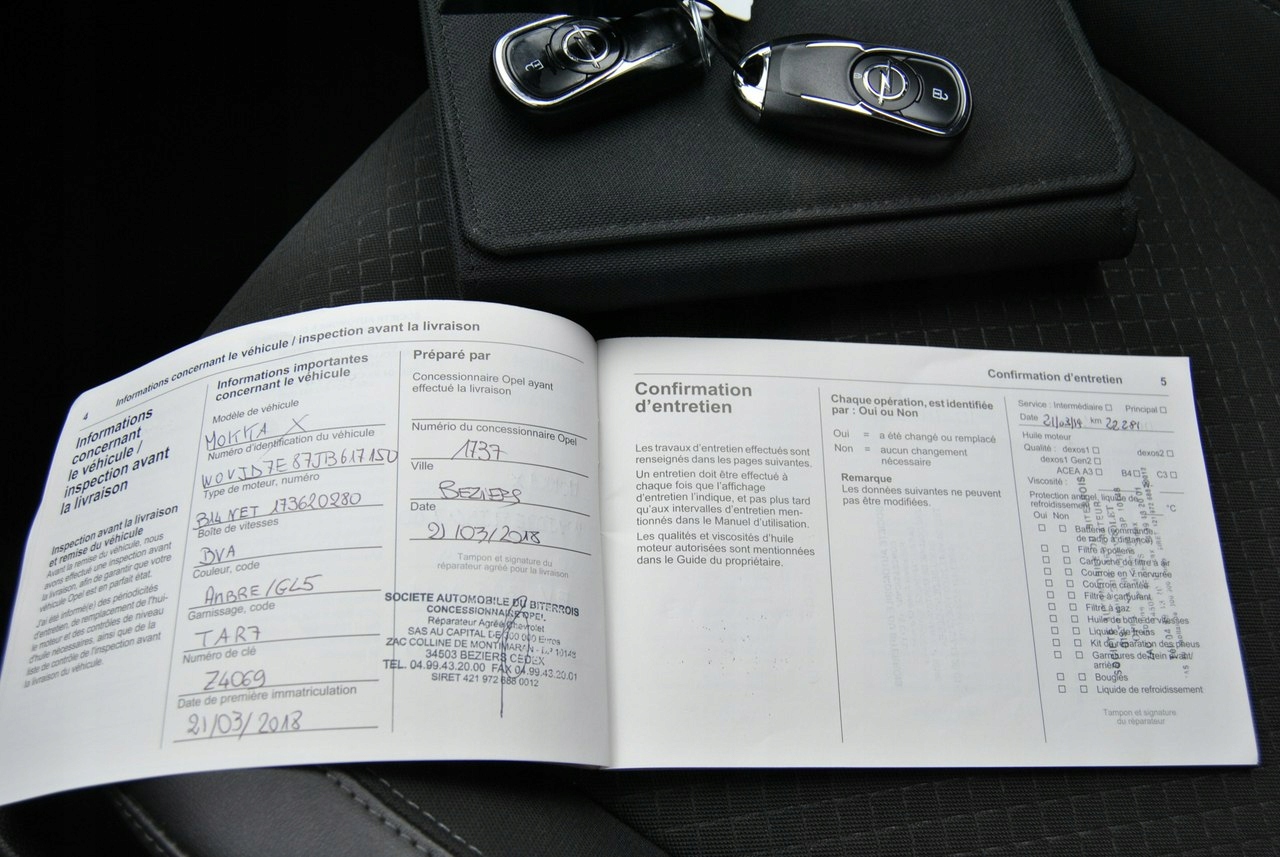 4
Informations concernant le véhicule / inspection avant la livraison
Informations
concernant
le véhicule /
inspection avant
la livraison
Inspection avant la livraison
et remise du véhicule
Avant la remise du véhicule, nous
avons effectué une inspection avant
la livraison, afin de garantir que votre
véhicule Opel est en parfait état.
J'ai été informé(e) des périodicités
d'entretien, de remplacement de l'hui-
le moteur et des contrôles de niveau
d'huile nécessaires, ainsi que de la
liste de contrôle de l'inspection avant
la livraison du véhicule.
Informations importantes
concernant le véhicule
Modèle de véhicule
MOKKA X
Numéro d'identification du véhicule
W0VJD7E87JB617150
Type de moteur, numéro
B14NET 173620280
Boîte de vitesses
BVA
Couleur, code
AMBRE/GL5
Garnissage, code
TAR7
Numéro de clé
Z4069
Date de première immatriculation
21/03/2018
Préparé par
Concessionnaire Opel ayant
effectué la livraison
Numério du concessionnaire Opel
1737
Ville
BEZIERS
Date
21/03/2018
Tampon et signature du
réparateur agréé pour la livraison
SOCIETE AUTOMOBILE DU BITERROIS
CONCESSIONNAIRE OPEL
Réparateur Agréé Chevrolet
SAS AU CAPITAL DE 300 000 Euros
ZAC COLLINE DE MONTIMARAN - 10146
34503 BEZIERS CEDEX
TEL. 04.99.43.20.00 FAX 04.99.43.20.01
SIRET 421 972 688 0012
Confirmation d'entretien
5
Confirmation
d'entretien
Les travaux d'entretien effectués sont
renseignés dans les pages suivantes.
Un entretien doit être effectué à
chaque fois que l'affichage
d'entretien l'indique, et pas plus tard
qu'aux intervalles d'entretien men-
tionnés dans le Manuel d'utilisation.
Les qualités et viscosités d'huile
moteur autorisées sont mentionnées
dans le Guide du propriétaire.
Chaque opération, est identifiée
par : Oui ou Non
Oui = a été changé ou remplacé
Non = aucun changement
nécessaire
Remarque
Les données suivantes ne peuvent
pas être modifiées.
Service : Intermédiaire Principal
Date 21/03/19 km 22.281
Huile moteur
Qualité : dexos1 dexos2
dexos1 Gen2
ACEA A3 B4 C3
Viscosité :
Protection antigel, liquide de
refroidissement °C
Oui Non
Batterie commande
de radio à distance
Filtre à pollens
Cartouche de filtre à air
Courroie en V nervurée
Courroie crantée
Filtre à carburant
Filtre à gaz
Huile de boîte de vitesses
Liquide de freins
Kit de réparation des pneus
Garnitures de frein avant/
arrière
Bougies
Liquide de refroidissement
Tampon et signature
du réparateur